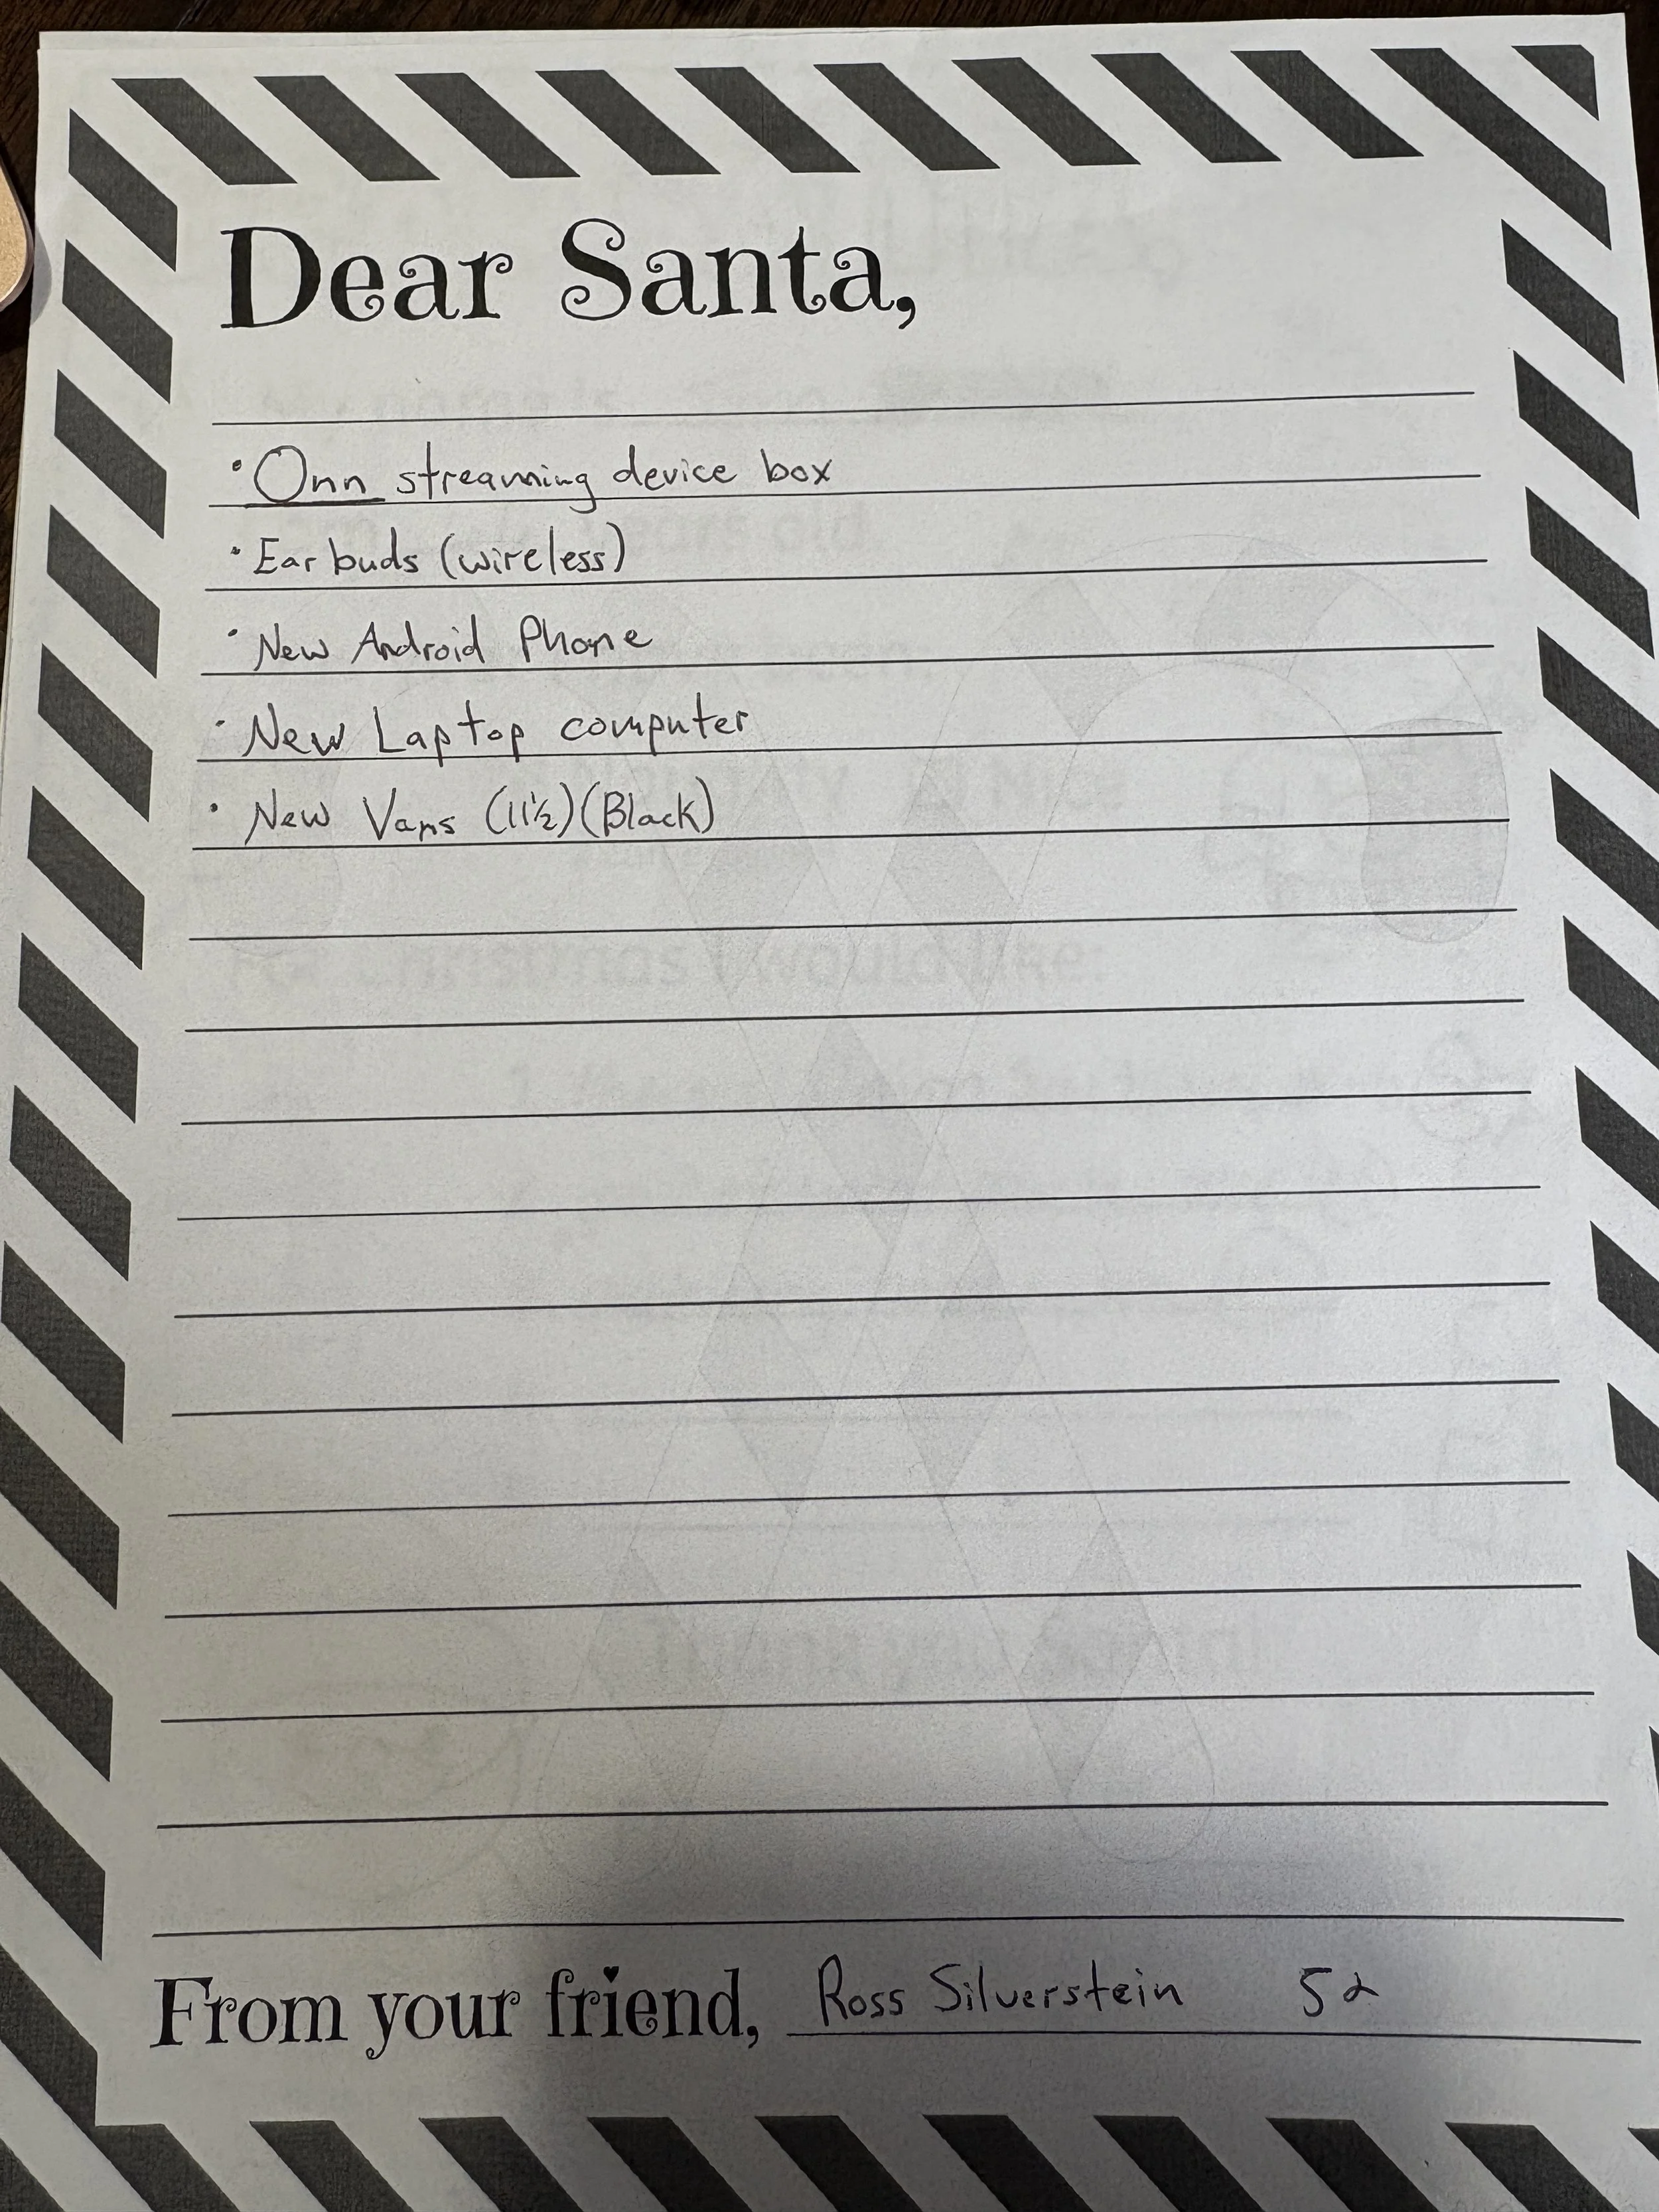 Dear Santa,
• Onn streaming device box
• Ear buds (wireless)
• New Android Phone
• New Laptop computer
• New Vans (11½)(Black)
For Christmas I would like:
From your friend, Ross Silverstein 52